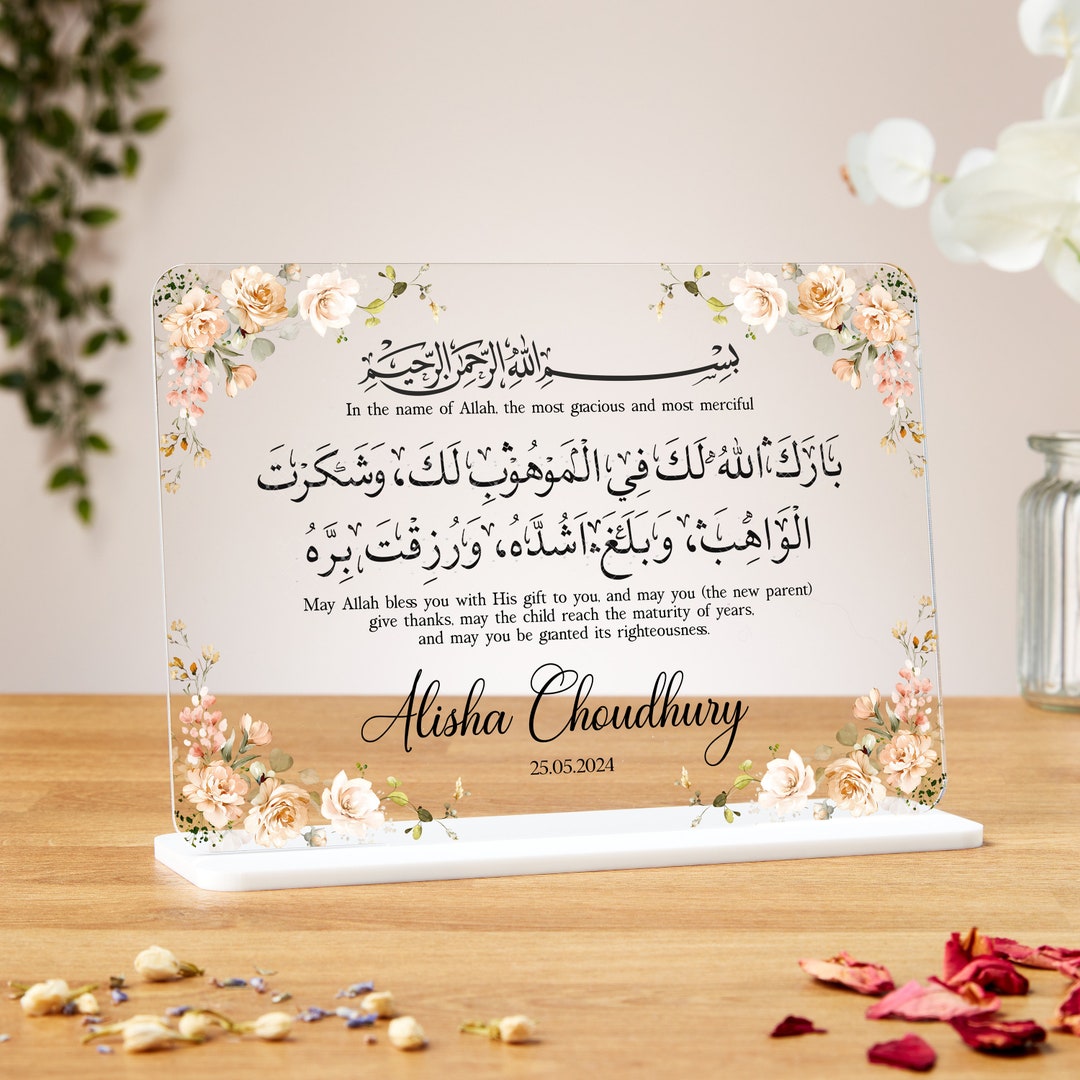 بِسْمِ اللهِ الرَّحْمٰنِ الرَّحِيْمِ
In the name of Allah, the most gracious and most merciful
بَارَكَ اللهُ لَكَ فِي الْمَوْهُوْبِ لَكَ، وَشَكَرْتَ
الْوَاهِبَ، وَبَلَغَ اَشُدَّهُ، وَرُزِقْتَ بِرَّهُ
May Allah bless you with His gift to you, and may you (the new parent)
give thanks, may the child reach the maturity of years,
and may you be granted its righteousness.
Alisha Choudhury
25.05.2024